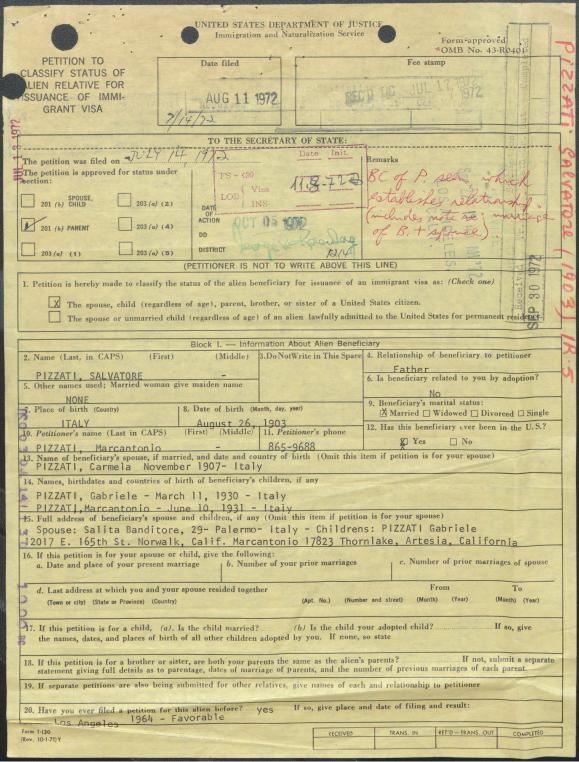 UNITED STATES DEPARTMENT OF JUSTICE
Immigration and Naturalization Service
Form approved
OMB No. 43-R0401
PETITION TO
CLASSIFY STATUS OF
ALIEN RELATIVE FOR
ISSUANCE OF IMMI-
GRANT VISA
Date filed
AUG 11 1972
7/14/72
Fee stamp
REC'D DC JUL 17 1972
PIZZATI SALVATORE (1903) IR-5
JUL 18 1972
TO THE SECRETARY OF STATE:
The petition was filed on JULY 14, 1972
The petition is approved for status under
section:
201 (b) SPOUSE, CHILD
203 (a) (2)
201 (b) PARENT
203 (a) (4)
203 (a) (1)
203 (a) (5)
Date Init.
FS-420
LOD Visa
INS
11-8-72
DATE OF ACTION
OCT 05 1972
DD
DISTRICT
Remarks
BC of P seen which
establishes relationship.
(includes note re: marriage
of B. + spouse)
SEP 30 1972
(PETITIONER IS NOT TO WRITE ABOVE THIS LINE)
1. Petition is hereby made to classify the status of the alien beneficiary for issuance of an immigrant visa as: (Check one)
X The spouse, child (regardless of age), parent, brother, or sister of a United States citizen.
The spouse or unmarried child (regardless of age) of an alien lawfully admitted to the United States for permanent residence.
Block I. — Information About Alien Beneficiary
2. Name (Last, in CAPS) (First) (Middle)
PIZZATI, SALVATORE -
3. Do Not Write in This Space
4. Relationship of beneficiary to petitioner
Father
5. Other names used; Married woman give maiden name
NONE
6. Is beneficiary related to you by adoption?
No
7. Place of birth (Country)
ITALY
8. Date of birth (Month, day, year)
August 26, 1903
9. Beneficiary's marital status:
X Married Widowed Divorced Single
10. Petitioner's name (Last in CAPS) (First) (Middle)
PIZZATI, Marcantonio -
11. Petitioner's phone
865-9688
12. Has this beneficiary ever been in the U.S.?
X Yes No
13. Name of beneficiary's spouse, if married, and date and country of birth (Omit this item if petition is for your spouse)
PIZZATI, Carmela November 1907- Italy
14. Names, birthdates and countries of birth of beneficiary's children, if any
PIZZATI, Gabriele - March 11, 1930 - Italy
PIZZATI,Marcantonio - June 10, 1931 - Italy
15. Full address of beneficiary's spouse and children, if any (Omit this item if petition is for your spouse)
Spouse: Salita Banditore, 29- Palermo- Italy - Childrens: PIZZATI Gabriele
12017 E. 165th St. Norwalk, Calif. Marcantonio 17823 Thornlake, Artesia, California
16. If this petition is for your spouse or child, give the following:
a. Date and place of your present marriage
b. Number of your prior marriages
c. Number of prior marriages of spouse
d. Last address at which you and your spouse resided together From To
(Town or city) (State or Province) (Country) (Apt. No.) (Number and street) (Month) (Year) (Month) (Year)
17. If this petition is for a child, (a). Is the child married? (b) Is the child your adopted child? If so, give
the names, dates, and places of birth of all other children adopted by you. If none, so state
18. If this petition is for a brother or sister, are both your parents the same as the alien's parents? If not, submit a separate
statement giving full details as to parentage, dates of marriage of parents, and the number of previous marriages of each parent.
19. If separate petitions are also being submitted for other relatives, give names of each and relationship to petitioner
20. Have you ever filed a petition for this alien before? yes If so, give place and date of filing and result:
Los Angeles 1964 - Favorable
Form I-130
(Rev. 10-1-71) Y
RECEIVED
TRANS. IN
RET'D—TRANS. OUT
COMPLETED